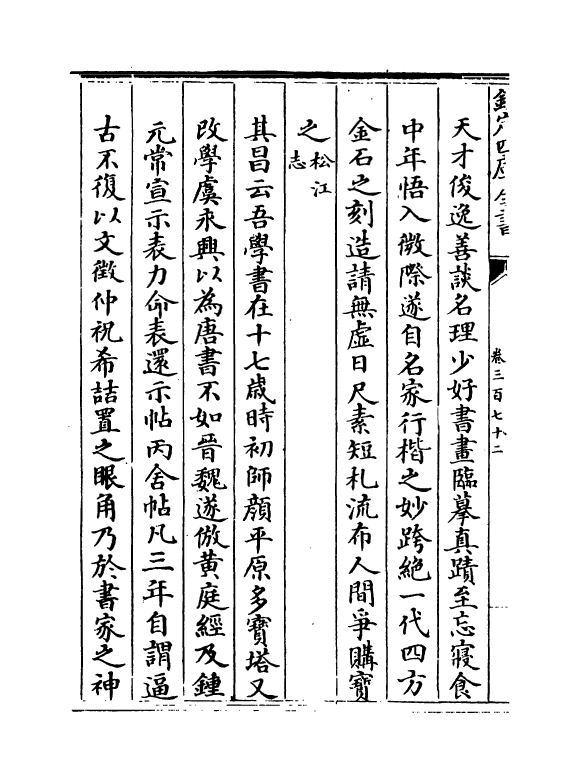 欽定四庫全書
卷三百七十二
天才俊逸善談名理少好書畫臨摹真蹟至忘寢食
中年悟入微際遂自名家行楷之妙跨絶一代四方
金石之刻造請無虛日尺素短札流布人間爭購寶
之松江志
其昌云吾學書在十七歲時初師顔平原多寶塔又
改學虞永興以為唐書不如晉魏遂倣黄庭經及鍾
元常宣示表力命表還示帖丙舍帖凡三年自謂逼
古不復以文徵仲祝希喆置之眼角乃於書家之神